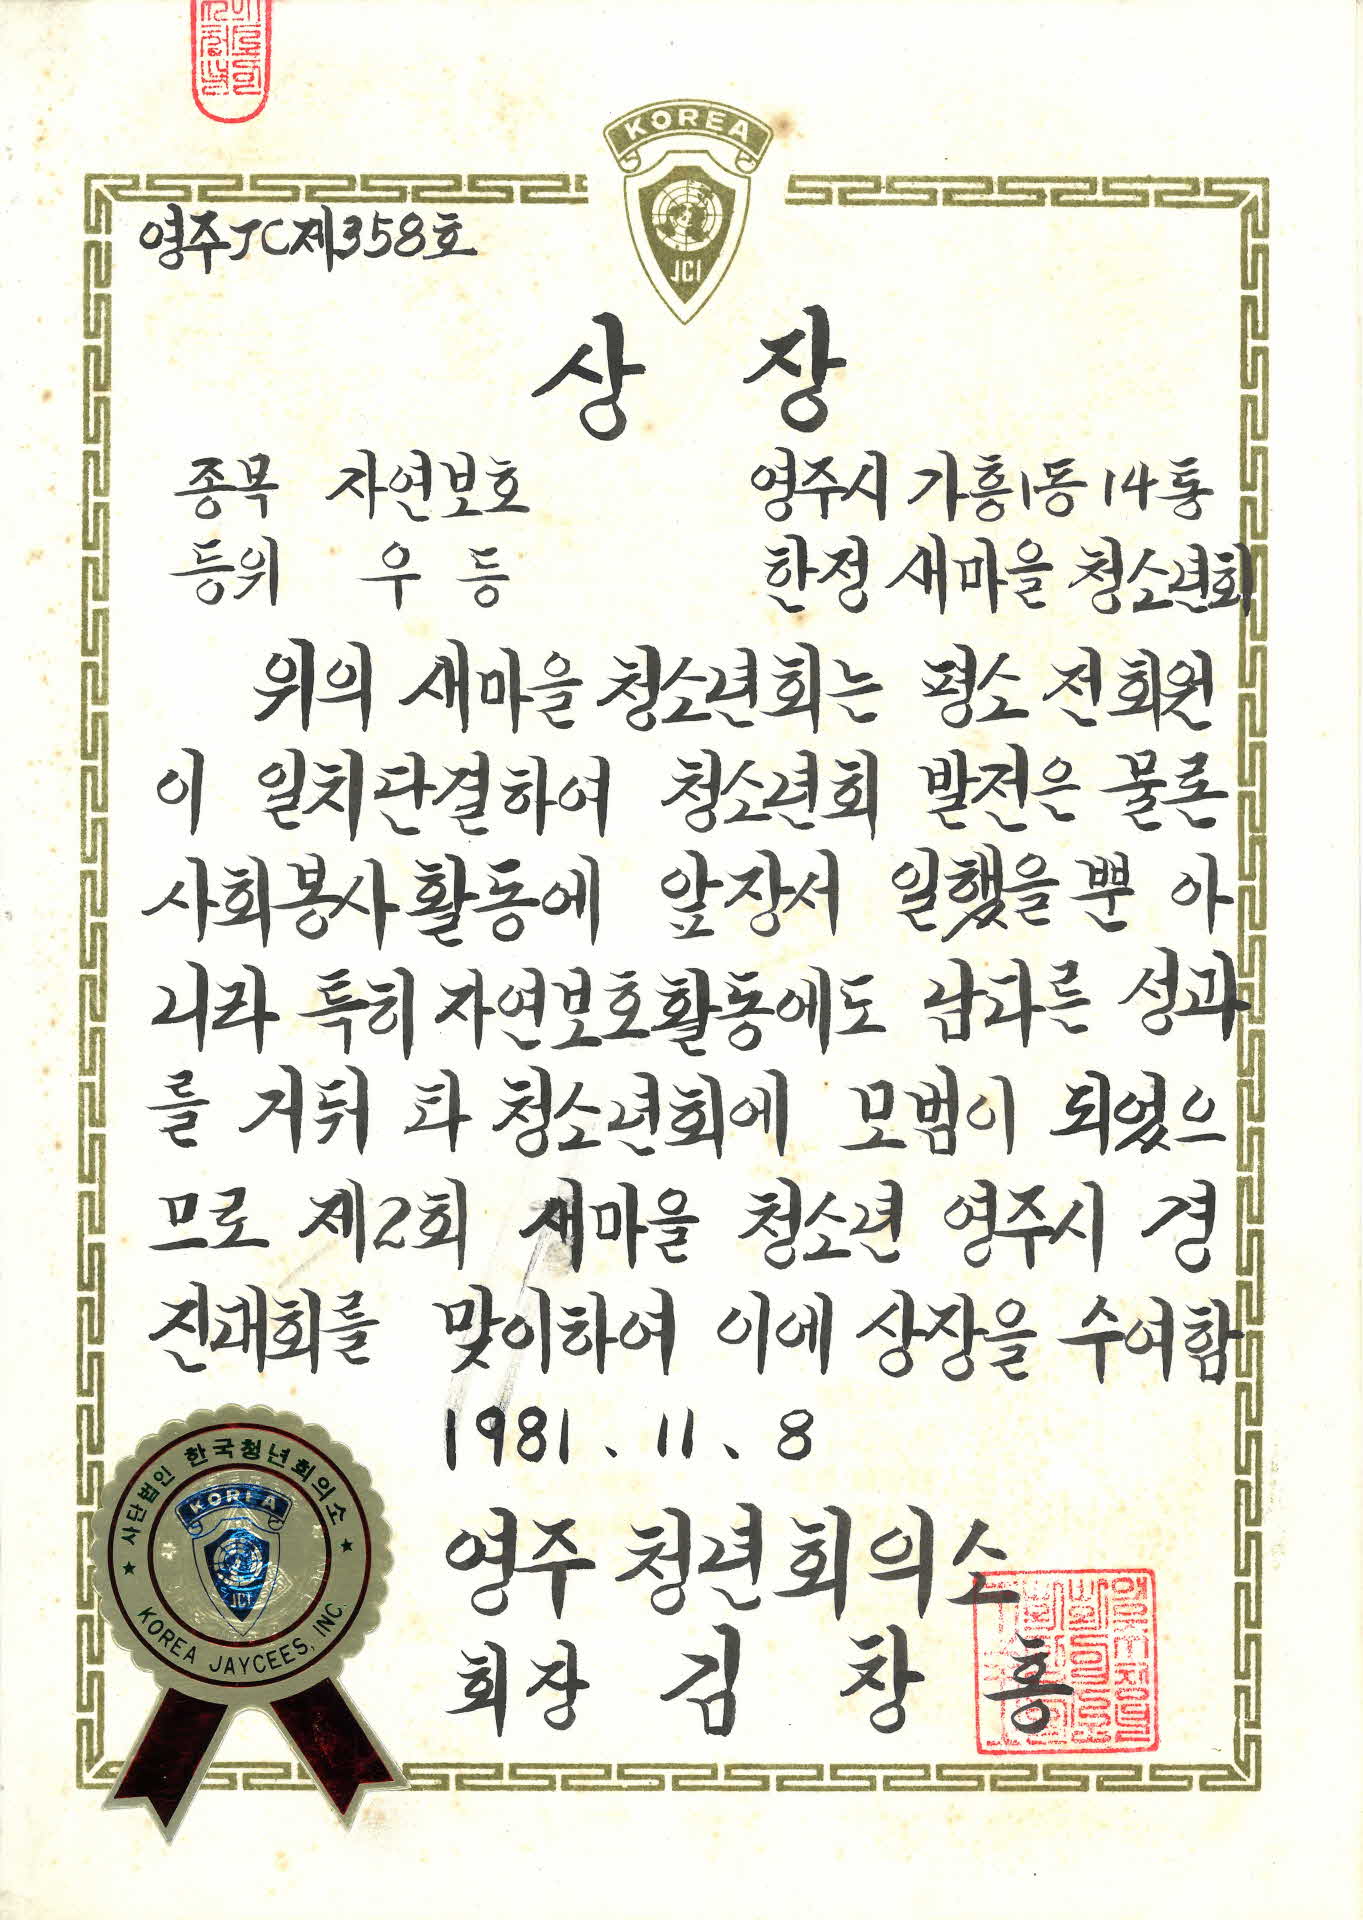 KOREA
JCI
영주JC제358호
상 장
종목 자연보호
등위 우등
영주시 가흥1동 14통
한정 새마을 청소년회
위의 새마을 청소년회는 평소 전회원
이 일치단결하여 청소년회 발전은 물론
사회봉사활동에 앞장서 일했을뿐 아
니라 특히 자연보호활동에도 남다른 성과
를 거둬 타 청소년회에 모범이 되었으
므로 제2회 새마을 청소년 영주시 경
진대회를 맞이하여 이에 상장을 수여함
1981. 11. 8
영주 청년회의소
회장 김창홍
사단법인 한국청년회의소
KOREA
JCI
KOREA JAYCEES, INC.